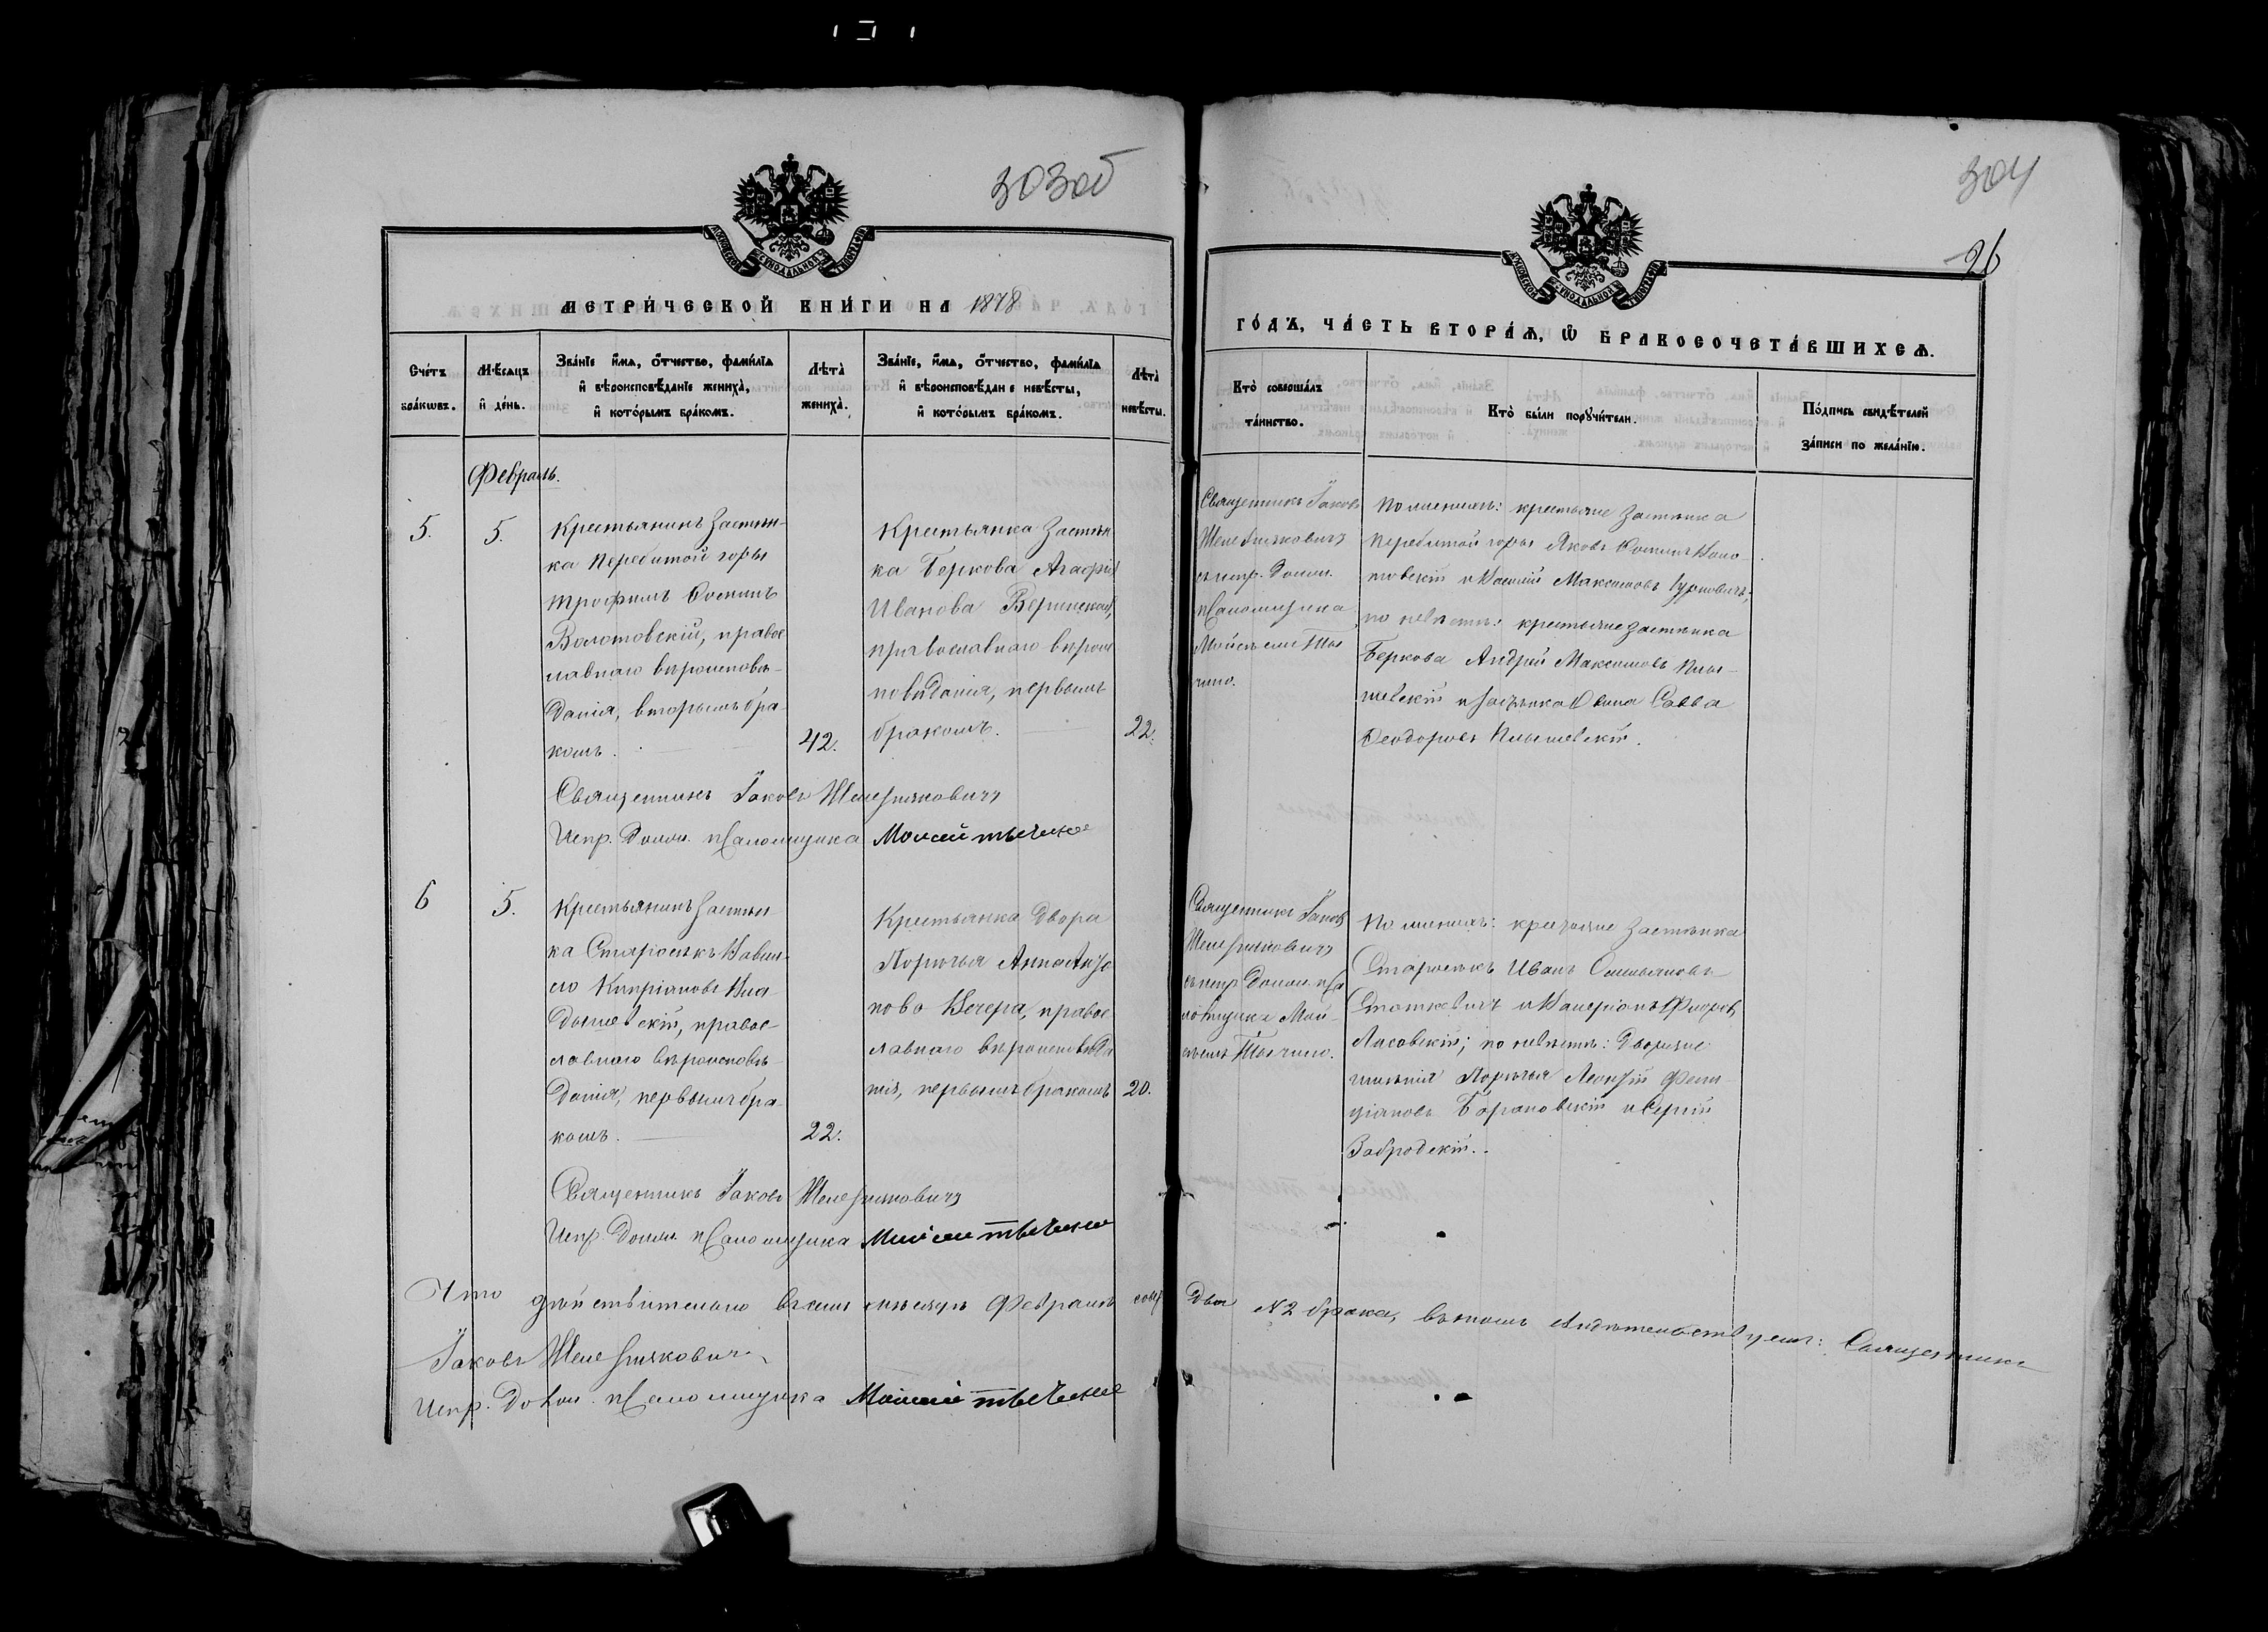 303об
304
26
МОСКОВСКОЙ СѴНОДАЛЬНОЙ ТИПОГРАФІИ
МОСКОВСКОЙ СѴНОДАЛЬНОЙ ТИПОГРАФІИ
МЕТРИ́ЧЕСКОЙ КНИ́ГИ НА 1878
ГО́ДЪ, ЧА́СТЬ ВТОРА́Ѧ, Ѡ БРАКОСОЧЕТА́ВШИХСѦ.
Сче́тъ
бра́кωвъ.
Мѣ́сяцъ
и҆ де́нь.
Зва́нїе и҆́мѧ, ѻ҆́тчество, фами́лїѧ
и҆ вѣроисповѣ́данїе жениха̀,
и҆ кото́рымъ бра́комъ.
Лѣта̀
жениха̀.
Зва́нїе, и҆́мѧ, ѻ҆́тчество, фами́лїѧ
и҆ вѣроисповѣ́данїе невѣ́сты,
и҆ кото́рымъ бра́комъ.
Лѣта̀
невѣ́сты.
Кто̀ соверша́лъ
та́инство.
Кто̀ бы́ли порꙋчи́тели.
По́дпись свидѣ́телей
за́писи по жела́нїю.
Февраль.
5.
5.
Крестьянинъ застѣн-
ка Перебитой горы
Трофимъ Ѳоминъ
Волотовскій, правос
лавнаго вѣроисповѣ-
данія, вторымъ бра-
комъ.
42.
Крестьянка застѣн
ка Беркова Агафія
Иванова Вержинская,
православнаго вѣроис
повѣданія, первымъ
бракомъ.
22.
Священникъ Іаковъ
Желѣзняковичъ
съ испр. должн.
псаломщика
Мойсеемъ
по женихѣ: крестьяне застѣнка
Перебитой горы Яковъ Ѳоминъ Воло-
товскій и Василій Максимовъ
по невѣстѣ: крестьяне застѣнка
Беркова Андрей Максимовъ
и застѣнка Савва
Ѳеодоровъ
Священникъ Іаковъ Желѣзняковичъ
Испр. должн. псаломщика Моисей
6
5.
Крестьянинъ застѣн-
ка Старосѣкъ
Кипріановъ Кла-
дышевскій, правос-
лавнаго вѣроисповѣ-
данія, первымъ бра-
комъ.
22.
Крестьянка двора
Порѣчья Анна
Вечера, правос
лавнаго вѣроисповѣда
нія, первымъ бракомъ
20.
Священникъ Іаковъ
Желѣзняковичъ
съ испр. должн. пса
ломщика Мой-
сеемъ
по женихѣ: крестьяне застѣнка
Старосѣкъ Иванъ
Статкевичъ и
Лисовскій; по невѣстѣ: дворяне
имѣнія Порѣчья
Барановскій и Сергій
Забродскій.
Священникъ Іаковъ Желѣзняковичъ
Испр. должн. псаломщика
Что дѣйствительно въ семъ мѣсяцѣ Февралѣ было два №2 брака, въ томъ свидѣтельствуемъ: Священникъ
Іаковъ Желѣзняковичъ
Испр. должн. псаломщика Моисей